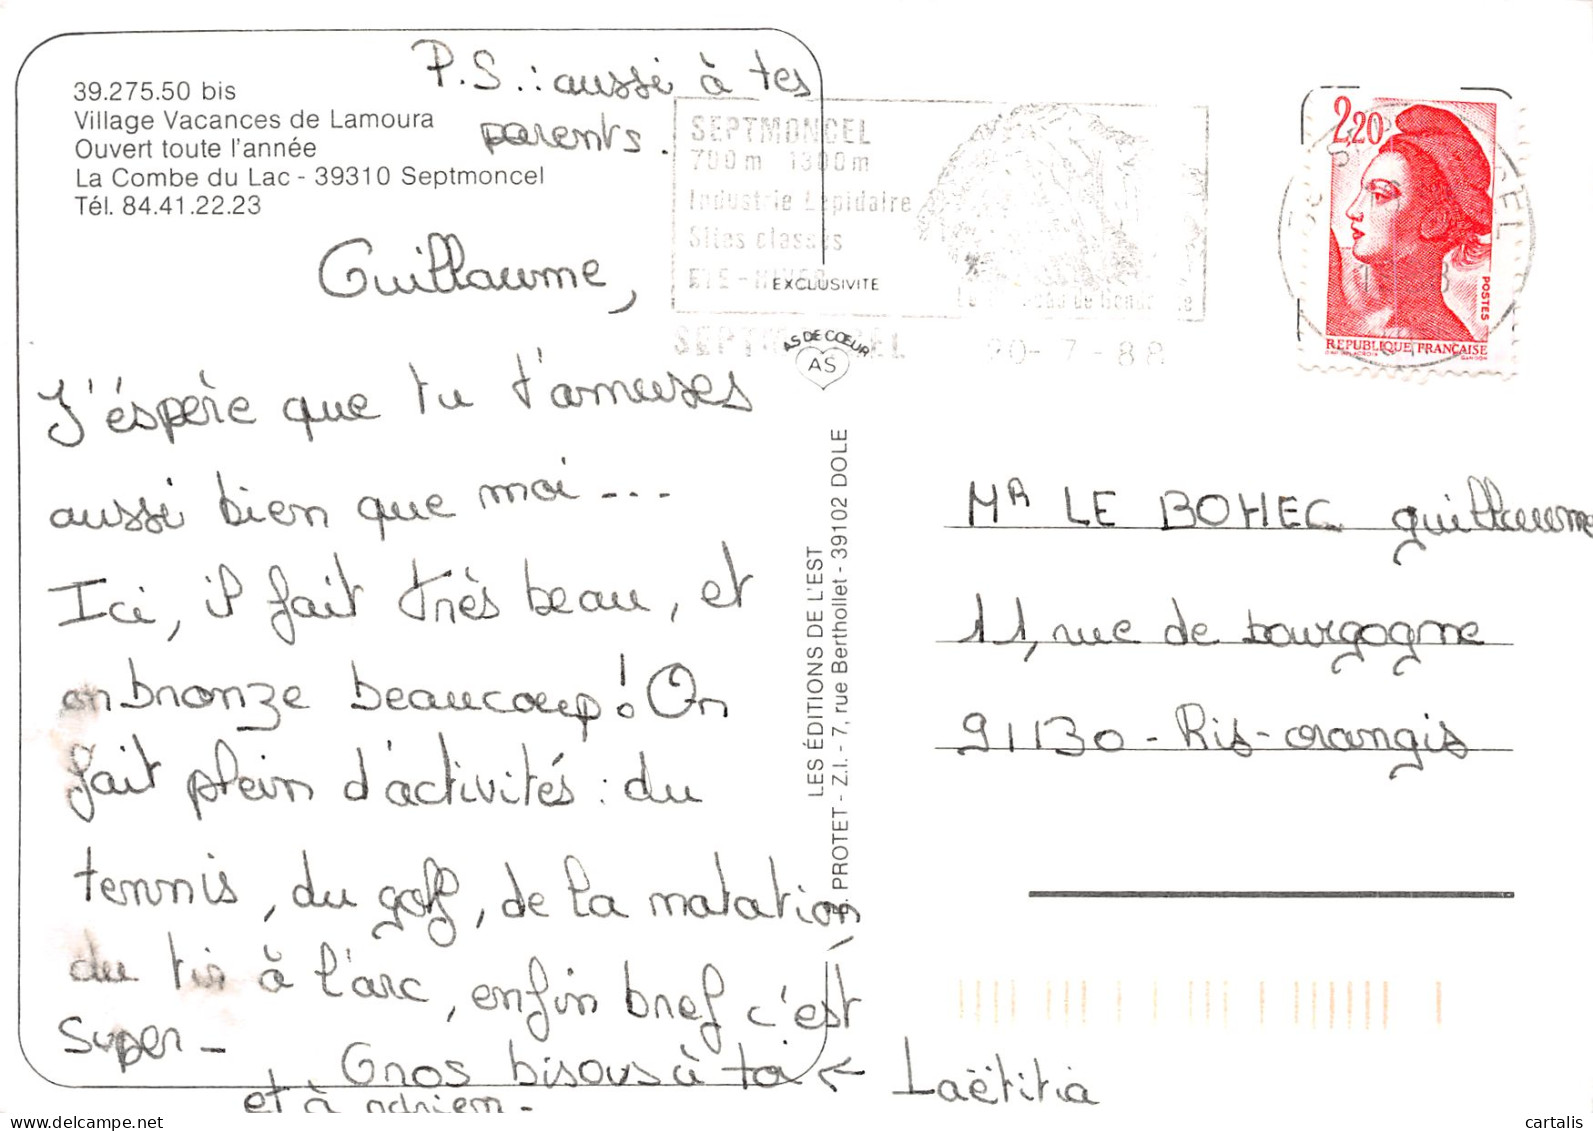 39.275.50 bis
Village Vacances de Lamoura
Ouvert toute l'année
La Combe du Lac - 39310 Septmoncel
Tél. 84.41.22.23
P.S.: aussi à tes
parents.
Guillaume,
J'éspère que tu t'amuses
aussi bien que moi ---
Ici, il fait très beau, et
on bronze beaucoup! On
fait plein d'activités : du
tennis, du golf, de la natation
du tir à l'arc, enfin bref c'est
super -
Gros bisous à toi ← Laëtitia
et à adrien -
SEPTMONCEL
700m 1300m
Industrie Lapidaire
Sites classés
ETE - HIVER
SEPTMONCEL
20-7-88
EXCLUSIVITE
AS DE COEUR
AS
LES ÉDITIONS DE L'EST
PROTET - Z.I. - 7, rue Berthollet - 39102 DOLE
2,20
POSTES
REPUBLIQUE FRANÇAISE
GANDON
MR LE BOHEC guillaume
11, rue de bourgogne
91130 - Ris-orangis
cartalis
www.delcampe.net